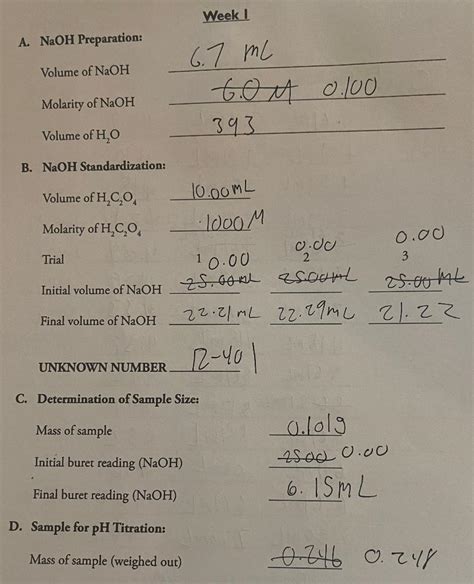 Week 1
A. NaOH Preparation:
Volume of NaOH 6.7 mL
Molarity of NaOH 6.0M 0.100
Volume of H₂O 393
B. NaOH Standardization:
Volume of H₂C₂O₄ 10.00mL
Molarity of H₂C₂O₄ .1000M
Trial 1 2 3
0.00 0.00 0.00
Initial volume of NaOH 25.00mL 25.00mL 25.00mL
Final volume of NaOH 22.21mL 22.29mL 21.22
UNKNOWN NUMBER 12-401
C. Determination of Sample Size:
Mass of sample 0.101g
Initial buret reading (NaOH) 2500 0.00
Final buret reading (NaOH) 6.15mL
D. Sample for pH Titration:
Mass of sample (weighed out) 0.246 0.248